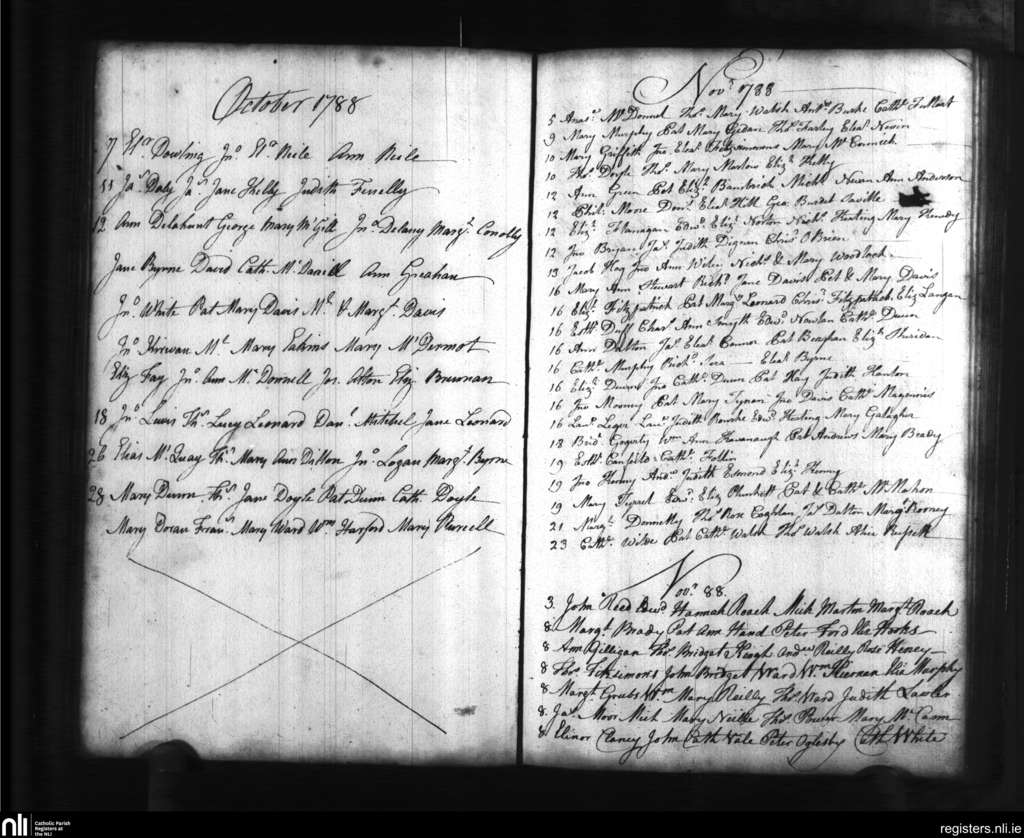 October 1788
7 Dowling Jno. Neile Ann Neile
11 Jas. Daly Jas. Jane Shelly Judith Fennelly
12 Ann Delahunt George Mary McGill Jno. Delany Margt. Conolly
Jane Byrne David Cath. Ann Greahan
Jno. White Pat Mary Davis & Margt. Davis
Jno. Kirwan Mt. Mary Eakins Mary McDermot
Eliz Fay Jno. Ann McDonnell Jos. Atton Eliz Brennan
18 Jno. Lewis Ths. Lucy Leonard Danl. Mitchel Jane Leonard
26 Elias McQuay Ths. Mary Ann Ditton Jno. Logan Margt. Byrne
28 Mary Dunn Ths. Jane Doyle Pat Dunn Cath Doyle
Mary Doran Frans. Mary Ward Wm. Harford Mary Purcell
Novr. 1788
5 Anas. McDonnel Thos. Mary Walsh Andw. Burke Cathe.
9 Mary Murphy Pat Mary Thos. Farley Elear. Nevin
10 Mary Griffith Jno Elear. Fitzsimmons Mary McCormick
10 Thos. Doyle Thos. Mary Marlow Elizh. Kelly
12 Ann Green Pat Elizh. Michl. Nevin Ann Anderson
12 Moore Denis Elear Hill Geo Burdet
12 Elizh. Flanagan Edwd. Elizh. Norton Nichs. Harting Mary Kennedy
12 Jno Bryan Jas. Judith Dignan Chrisr. O'Brien
13 Jacob Hog Jno Ann Wilen Nichs & Mary Woodlock
16 Mary Ann Stewart Richd. Jane Davis Pat & Mary Davis
16 Elizh. Fitzpatrick Pat Margt. Leonard Chrisr. Fitzpatrick Eliz Langan
16 Esthr. Duff Chars. Ann Smyth Edwd. Nowlan Cathe. Dunn
16 Ann Dalton Jas. Elear. Connor Pat Elizh. Sheridan
16 Cathe. Murphy Richd. — Eleanr. Byrne
16 Elizh. Jno Cathe. Dunn Pat Hay Judith Hanlon
16 Jno Mooney Pat Mary Tynan Jno Davis Cathe. Magennis
16 Lawce. Leger Lawce. Judith Rourke Edwd. Harting Mary Galagher
18 Bridt. Gogerty Wm. Ann Kavanaugh Pat Andrews Mary Brady
19 Esthr. Cathe.
19 Jno Andw. Judith Esmond Elizh.
19 Mary Tyrrel Edwd. Eliz Plunkett Pat & Cathe. McMahon
21 Margt. Donnelly Thos. Rose Coghlan Jas. Dalton Margt. Rooney
23 Cathe. Wilde Pat Cathe. Walsh Thos. Walsh Alice Russell
Novr. 88.
3. John Reed Edwd. Hannah Roach Mich Martin Margt. Roach
8. Margt. Brady Pat Ann Hand Peter Ford
8 Ann Gilligan Thos. Bridget Keogh Andw. Reilly Rose Heney
8 Thos. Fitzsimons John Bridget Ward Wm. Kiernan Murphy
8. Margt. Grubs Wm. Mary Reilly Thos. Ward Judith Lawler
8. Jas. Moor Mich Mary Neille Thos. Power Mary McCann
8. Elinor Clancy John Cath Vale Peter Oglesby Cath White
nli
Catholic Parish
Registers at
the NLI
registers.nli.ie